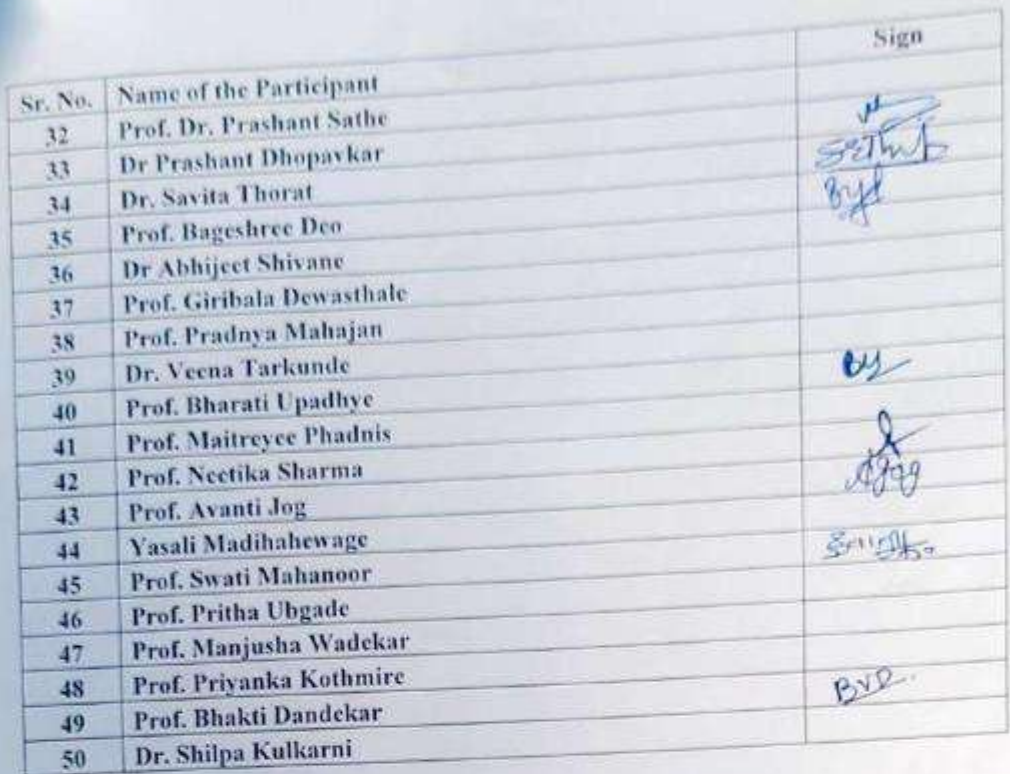 Sr. No. Name of the Participant Sign
32 Prof. Dr. Prashant Sathe
33 Dr Prashant Dhopavkar
34 Dr. Savita Thorat
35 Prof. Bageshree Deo
36 Dr Abhijeet Shivane
37 Prof. Giribala Dewasthale
38 Prof. Pradnya Mahajan
39 Dr. Veena Tarkunde
40 Prof. Bharati Upadhye
41 Prof. Maitreyee Phadnis
42 Prof. Neetika Sharma
43 Prof. Avanti Jog
44 Yasali Madihahewage
45 Prof. Swati Mahanoor
46 Prof. Pritha Ubgade
47 Prof. Manjusha Wadekar
48 Prof. Priyanka Kothmire
49 Prof. Bhakti Dandekar BVD.
50 Dr. Shilpa Kulkarni